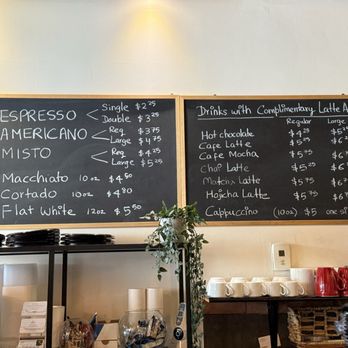 ESPRESSO Single $2.75
Double $3.25
AMERICANO Reg. $3.75
Large $4.75
MISTO Reg. $4.25
Large $5.25
Macchiato 10oz $4.50
Cortado 10oz $4.80
Flat White 12oz $5.50
Drinks with Complimentary Latte A
Regular Large
Hot chocolate $4.25 $5
Cafe Latte $5.25 $6
Cafe Mocha $5.75 $6
Chai Latte $5.25
Matcha Latte $5.75 $6
Hojicha Latte $5.75 $6
Cappuccino (10oz) $5 one si